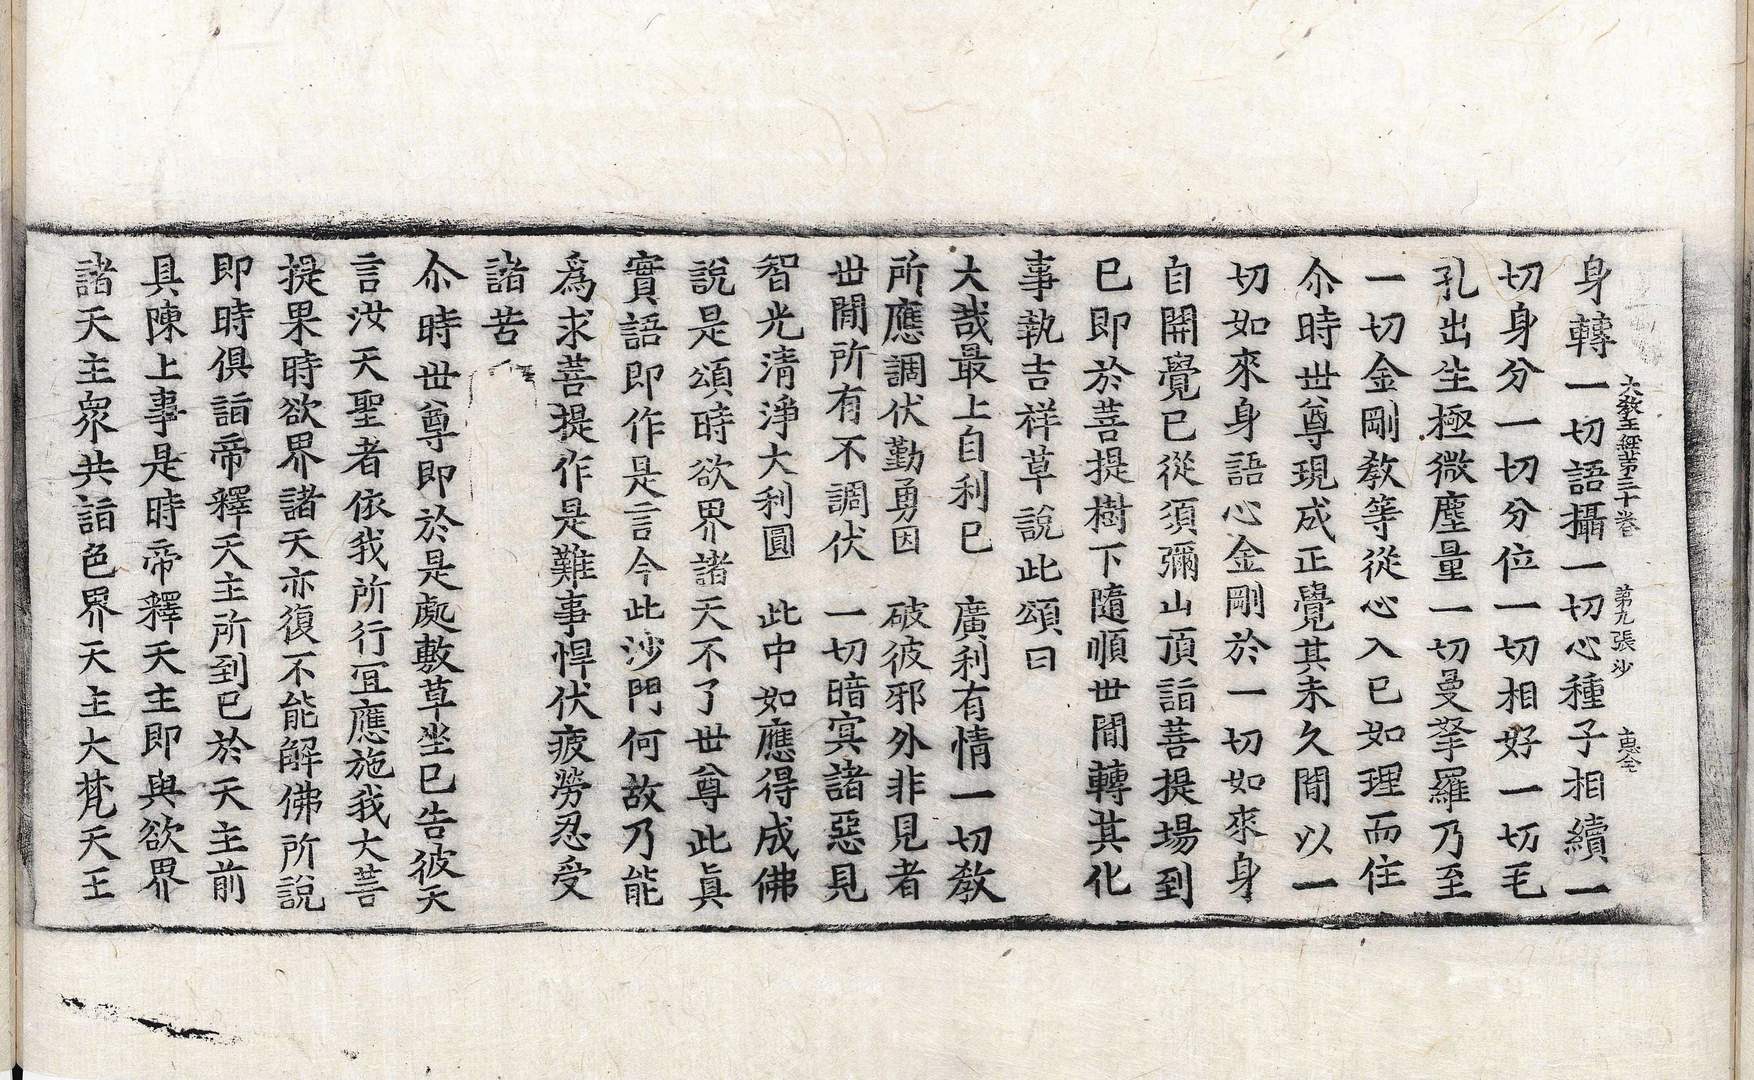 大教王經第三十卷　第九張　沙
身轉一切語攝一切心種子相續一
切身分一切分位一切相好一切毛
孔出生極微塵量一切曼拏羅乃至
一切金剛教等從心入已如理而住
尒時世尊現成正覺其未久閒以一
切如來身語心金剛於一切如來身
自開覺已從須彌山頂詣菩提場到
已即於菩提樹下隨順世閒轉其化
事執吉祥草說此頌曰
大哉最上自利已　廣利有情一切教
所應調伏勤勇因　破彼邪外非見者
世閒所有不調伏　一切暗冥諸惡見
智光清淨大利圓　此中如應得成佛
說是頌時欲界諸天不了世尊此眞
實語即作是言今此沙門何故乃能
爲求菩提作是難事悍伏疲勞忍受
諸苦
尒時世尊即於是處敷草坐已告彼天
言汝天聖者依我所行宜應施我大菩
提果時欲界諸天亦復不能解佛所說
即時俱詣帝釋天主所到已於天主前
具陳上事是時帝釋天主即與欲界
諸天主衆共詣色界天主大梵天王